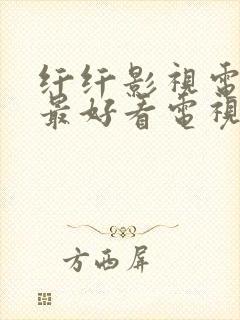 纤纤影視電
最好看電視
方西屏